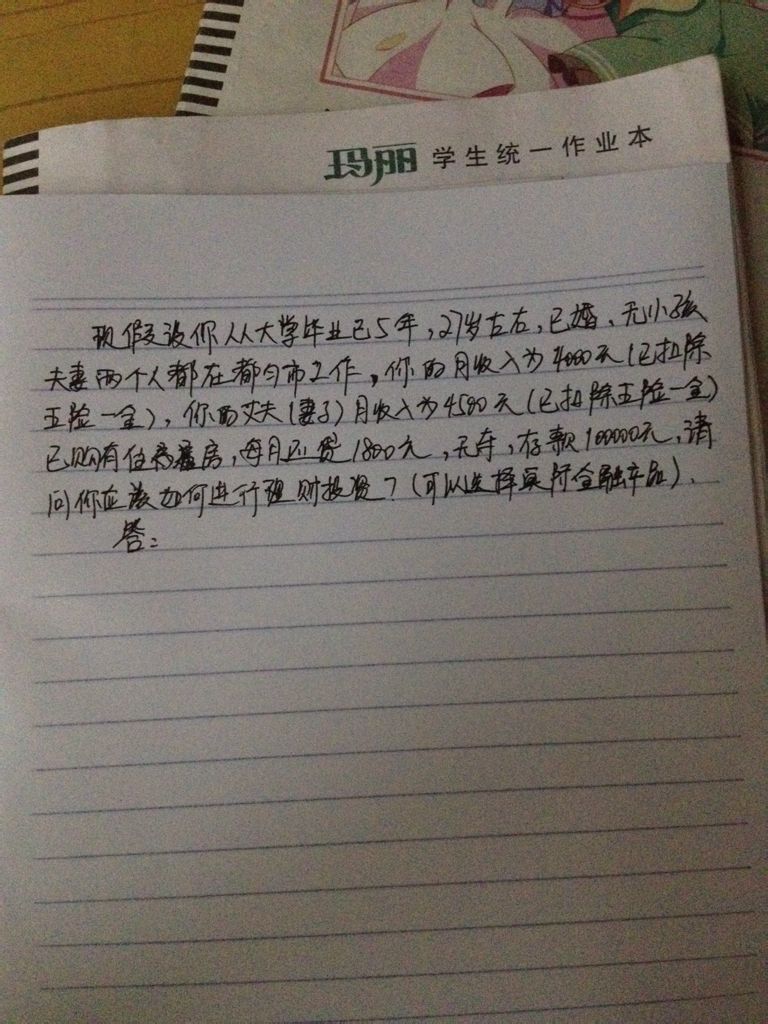 玛丽 学生统一作业本
现假设你从大学毕业已5年,27岁左右,已婚、无小孩
夫妻两个人都在都匀市工作,你的月收入为4000元(已扣除
五险一金),你的丈夫(妻子)月收入为4500元(已扣除五险一金)
已购有住房,每月还贷1800元,无车,存款100000元,请
问你应该如何进行理财投资?(可以选择实际金融产品).
答: